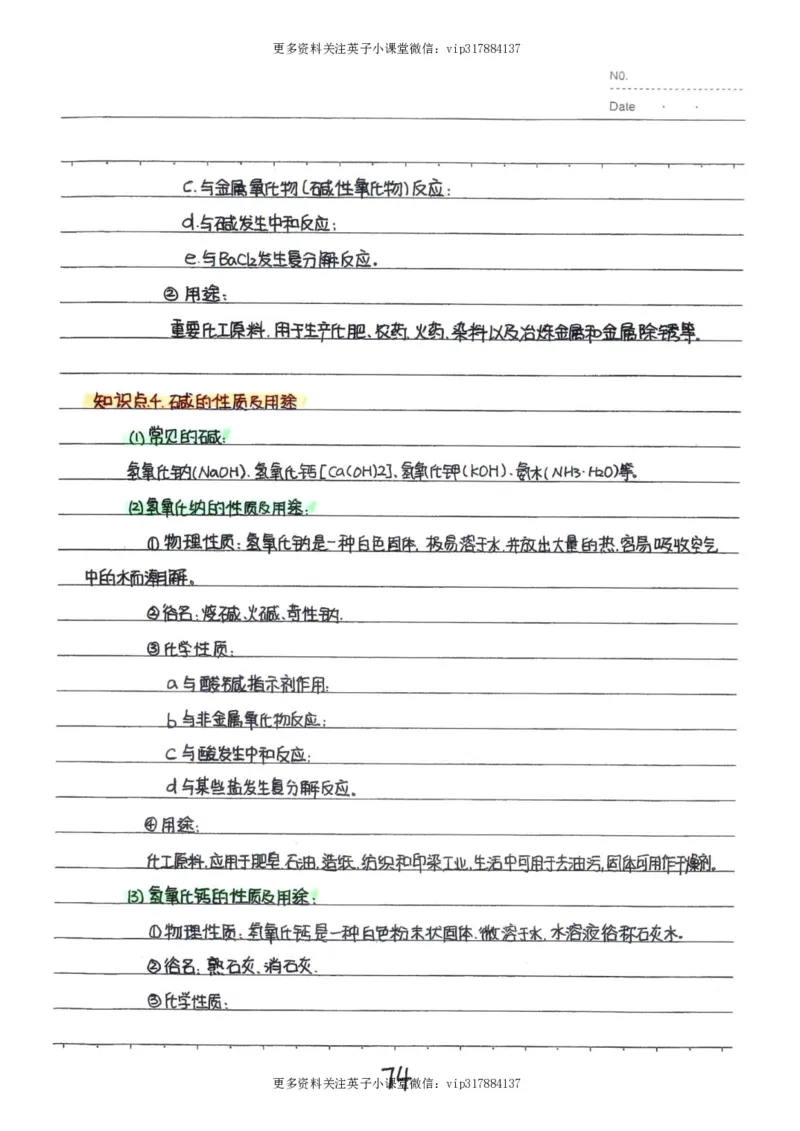 更多资料关注英子小课堂微信：vip317884137
NO.
Date
c.与金属氧化物(碱性氧化物)反应；
d.与碱发生中和反应；
e.与BaCl2发生复分解反应。
② 用途：
重要化工原料,用于生产化肥、农药,火药,染料以及冶炼金属和金属除锈等。
知识点4.碱的性质及用途
(1)常见的碱：
氢氧化钠(NaOH)、氢氧化钙[Ca(OH)2]、氢氧化钾(KOH)、氨水(NH3·H2O)等。
(2)氢氧化钠的性质及用途：
①物理性质：氢氧化钠是一种白色固体,极易溶于水,并放出大量的热,容易吸收空气
中的水而潮解。
②俗名：烧碱、火碱、苛性钠.
③化学性质：
a与酸碱指示剂作用；
b与非金属氧化物反应；
c与酸发生中和反应；
d与某些盐发生复分解反应。
④用途：
化工原料,应用于肥皂、石油,造纸,纺织和印染工业,生活中可用于去油污,固体可用作干燥剂。
(3)氢氧化钙的性质及用途：
①物理性质：氢氧化钙是一种白色粉末状固体.微溶于水,水溶液俗称石灰水。
②俗名：熟石灰、消石灰.
③化学性质：
74
更多资料关注英子小课堂微信：vip317884137